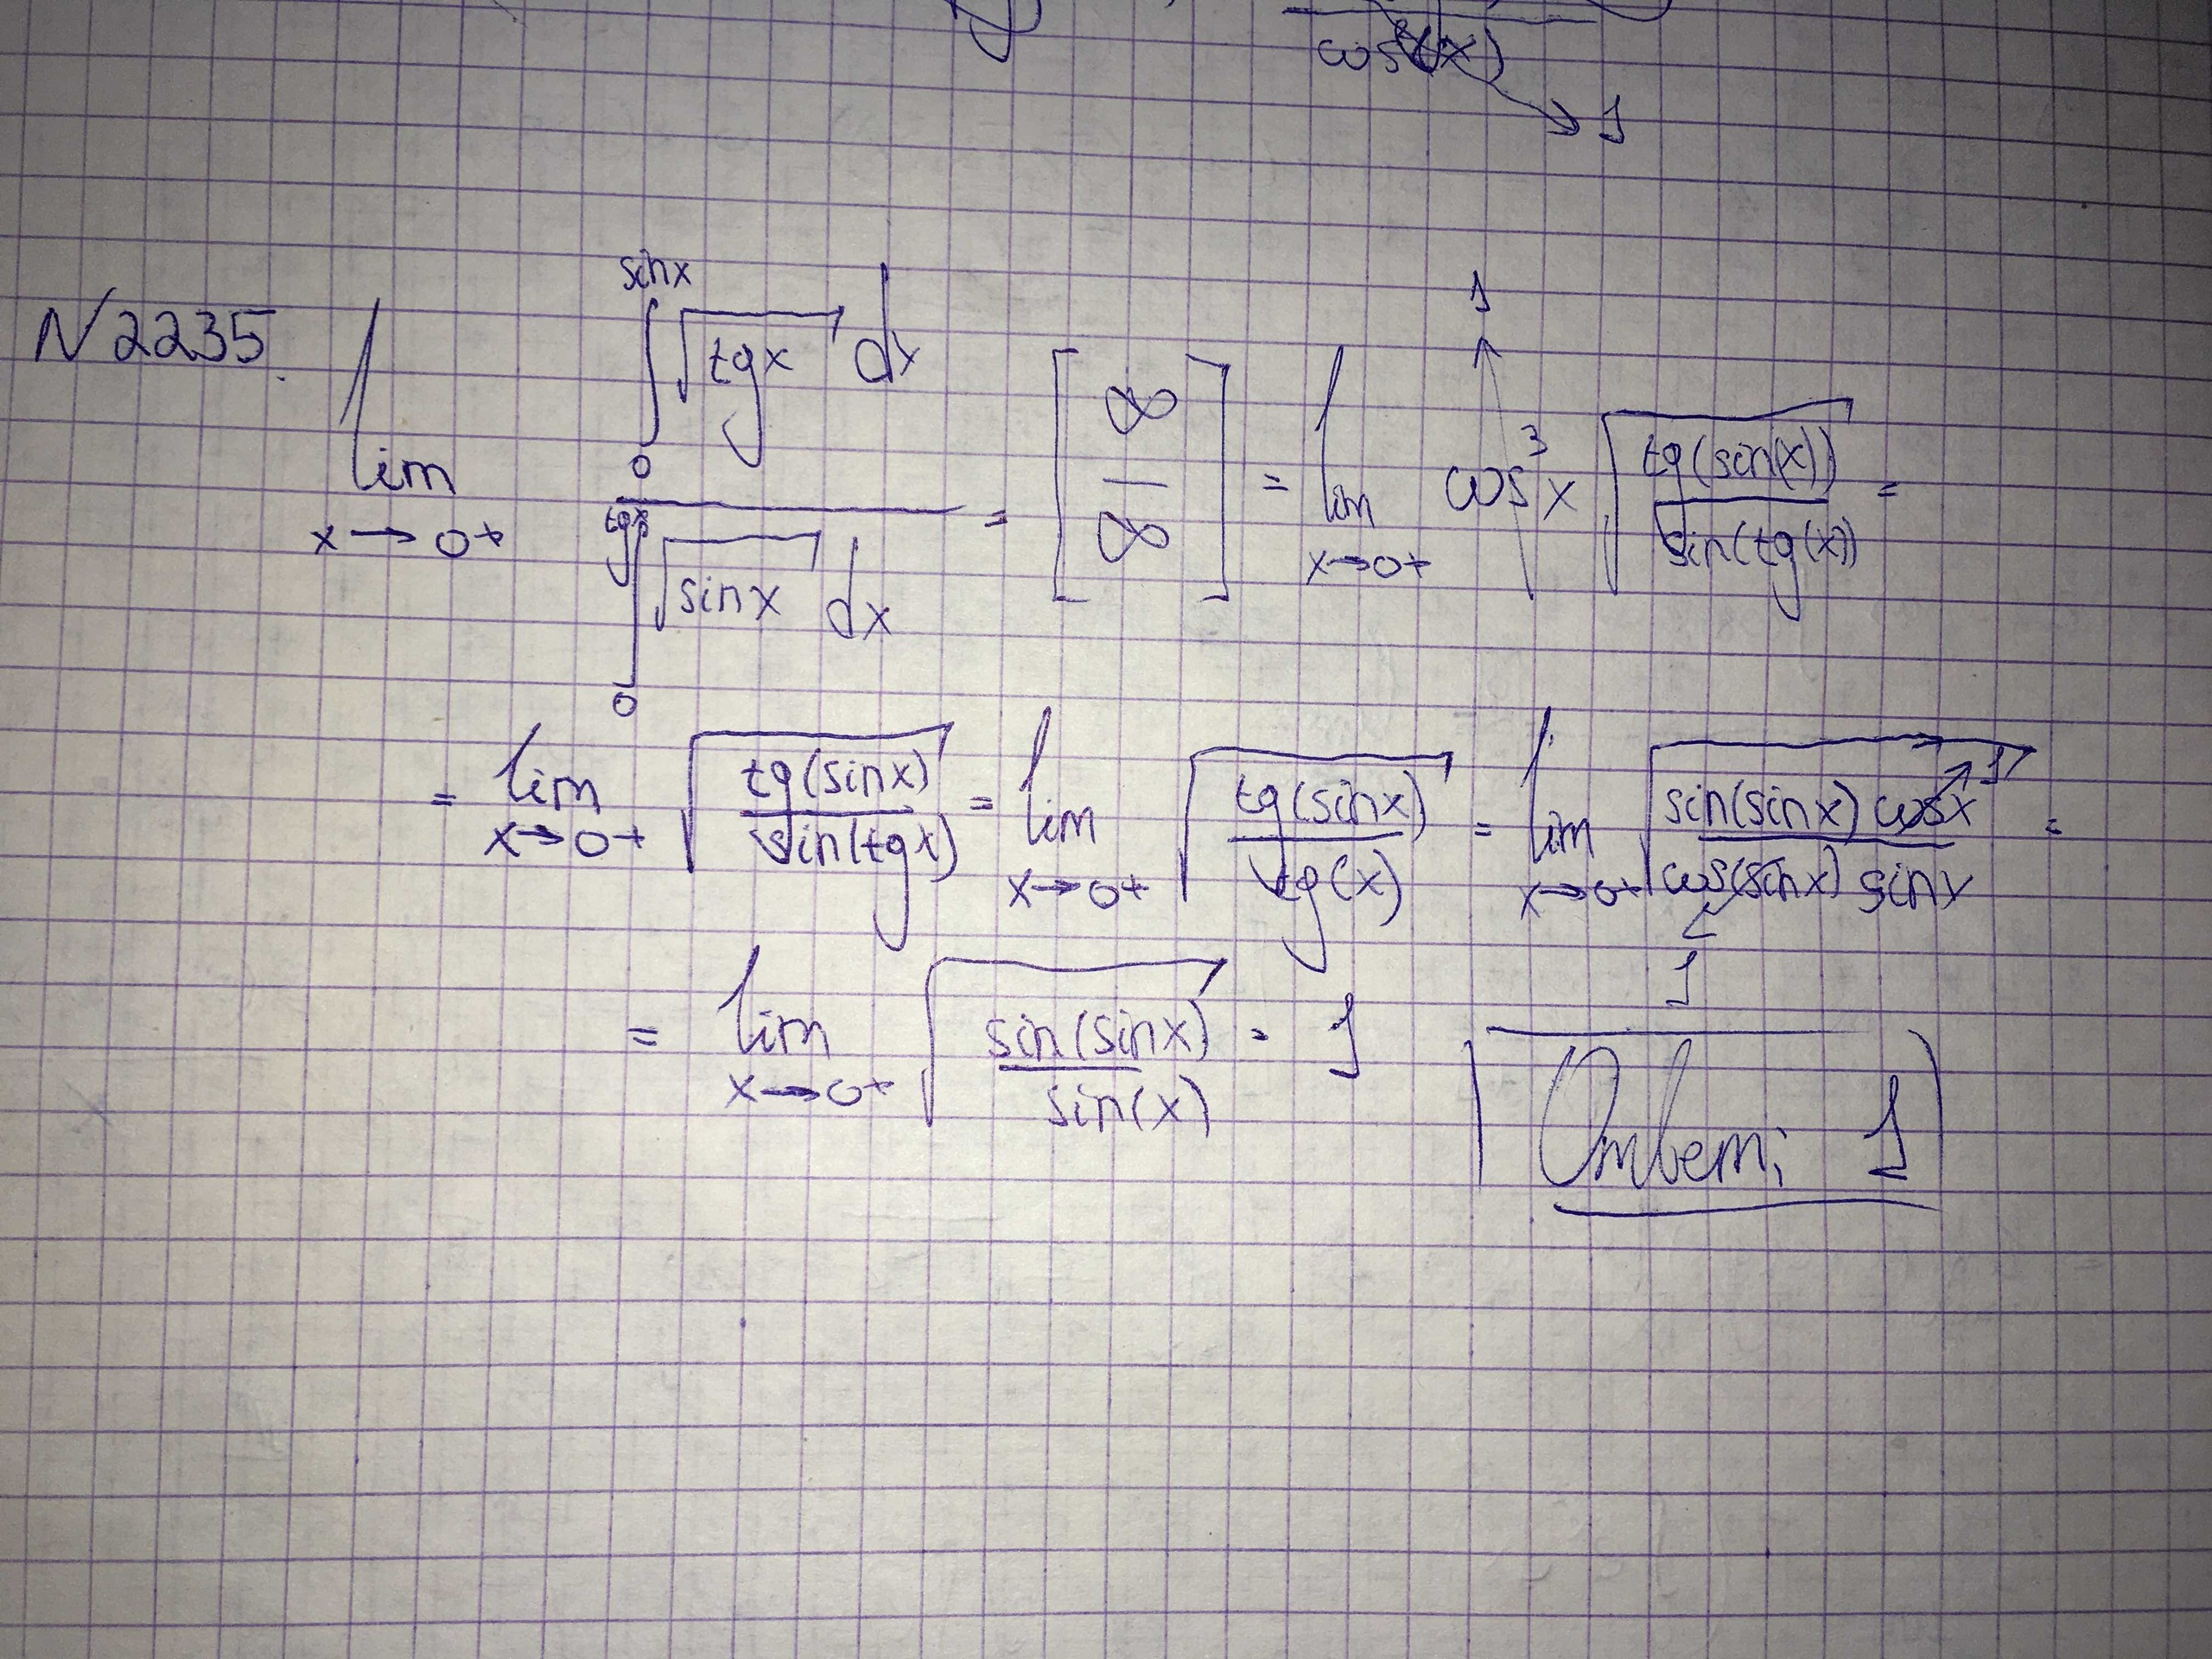 cos²(x)
→ 1
N 2235. lim x→0+ ∫₀^{sinx} √tgx dx / ∫₀^{tgx} √sinx dx = [∞/∞] = lim x→0+ cos³x ↑1 √(tg(sin(x))/sin(tg(x))) =
= lim x→0+ √(tg(sinx)/sin(tgx)) = lim x→0+ √(tg(sinx)/tg(x)) = lim x→0+ √(sin(sinx) cosx ↗1 / cos(sinx) ↙1 sinx) =
= lim x→0+ √(sin(sinx)/sin(x)) = 1
Ответ: 1